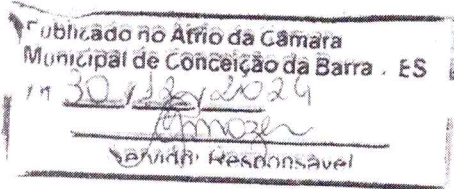 Publicado no Átrio da Câmara
Municipal de Conceição da Barra . ES
30 / 12 / 2024
Servidor Responsável